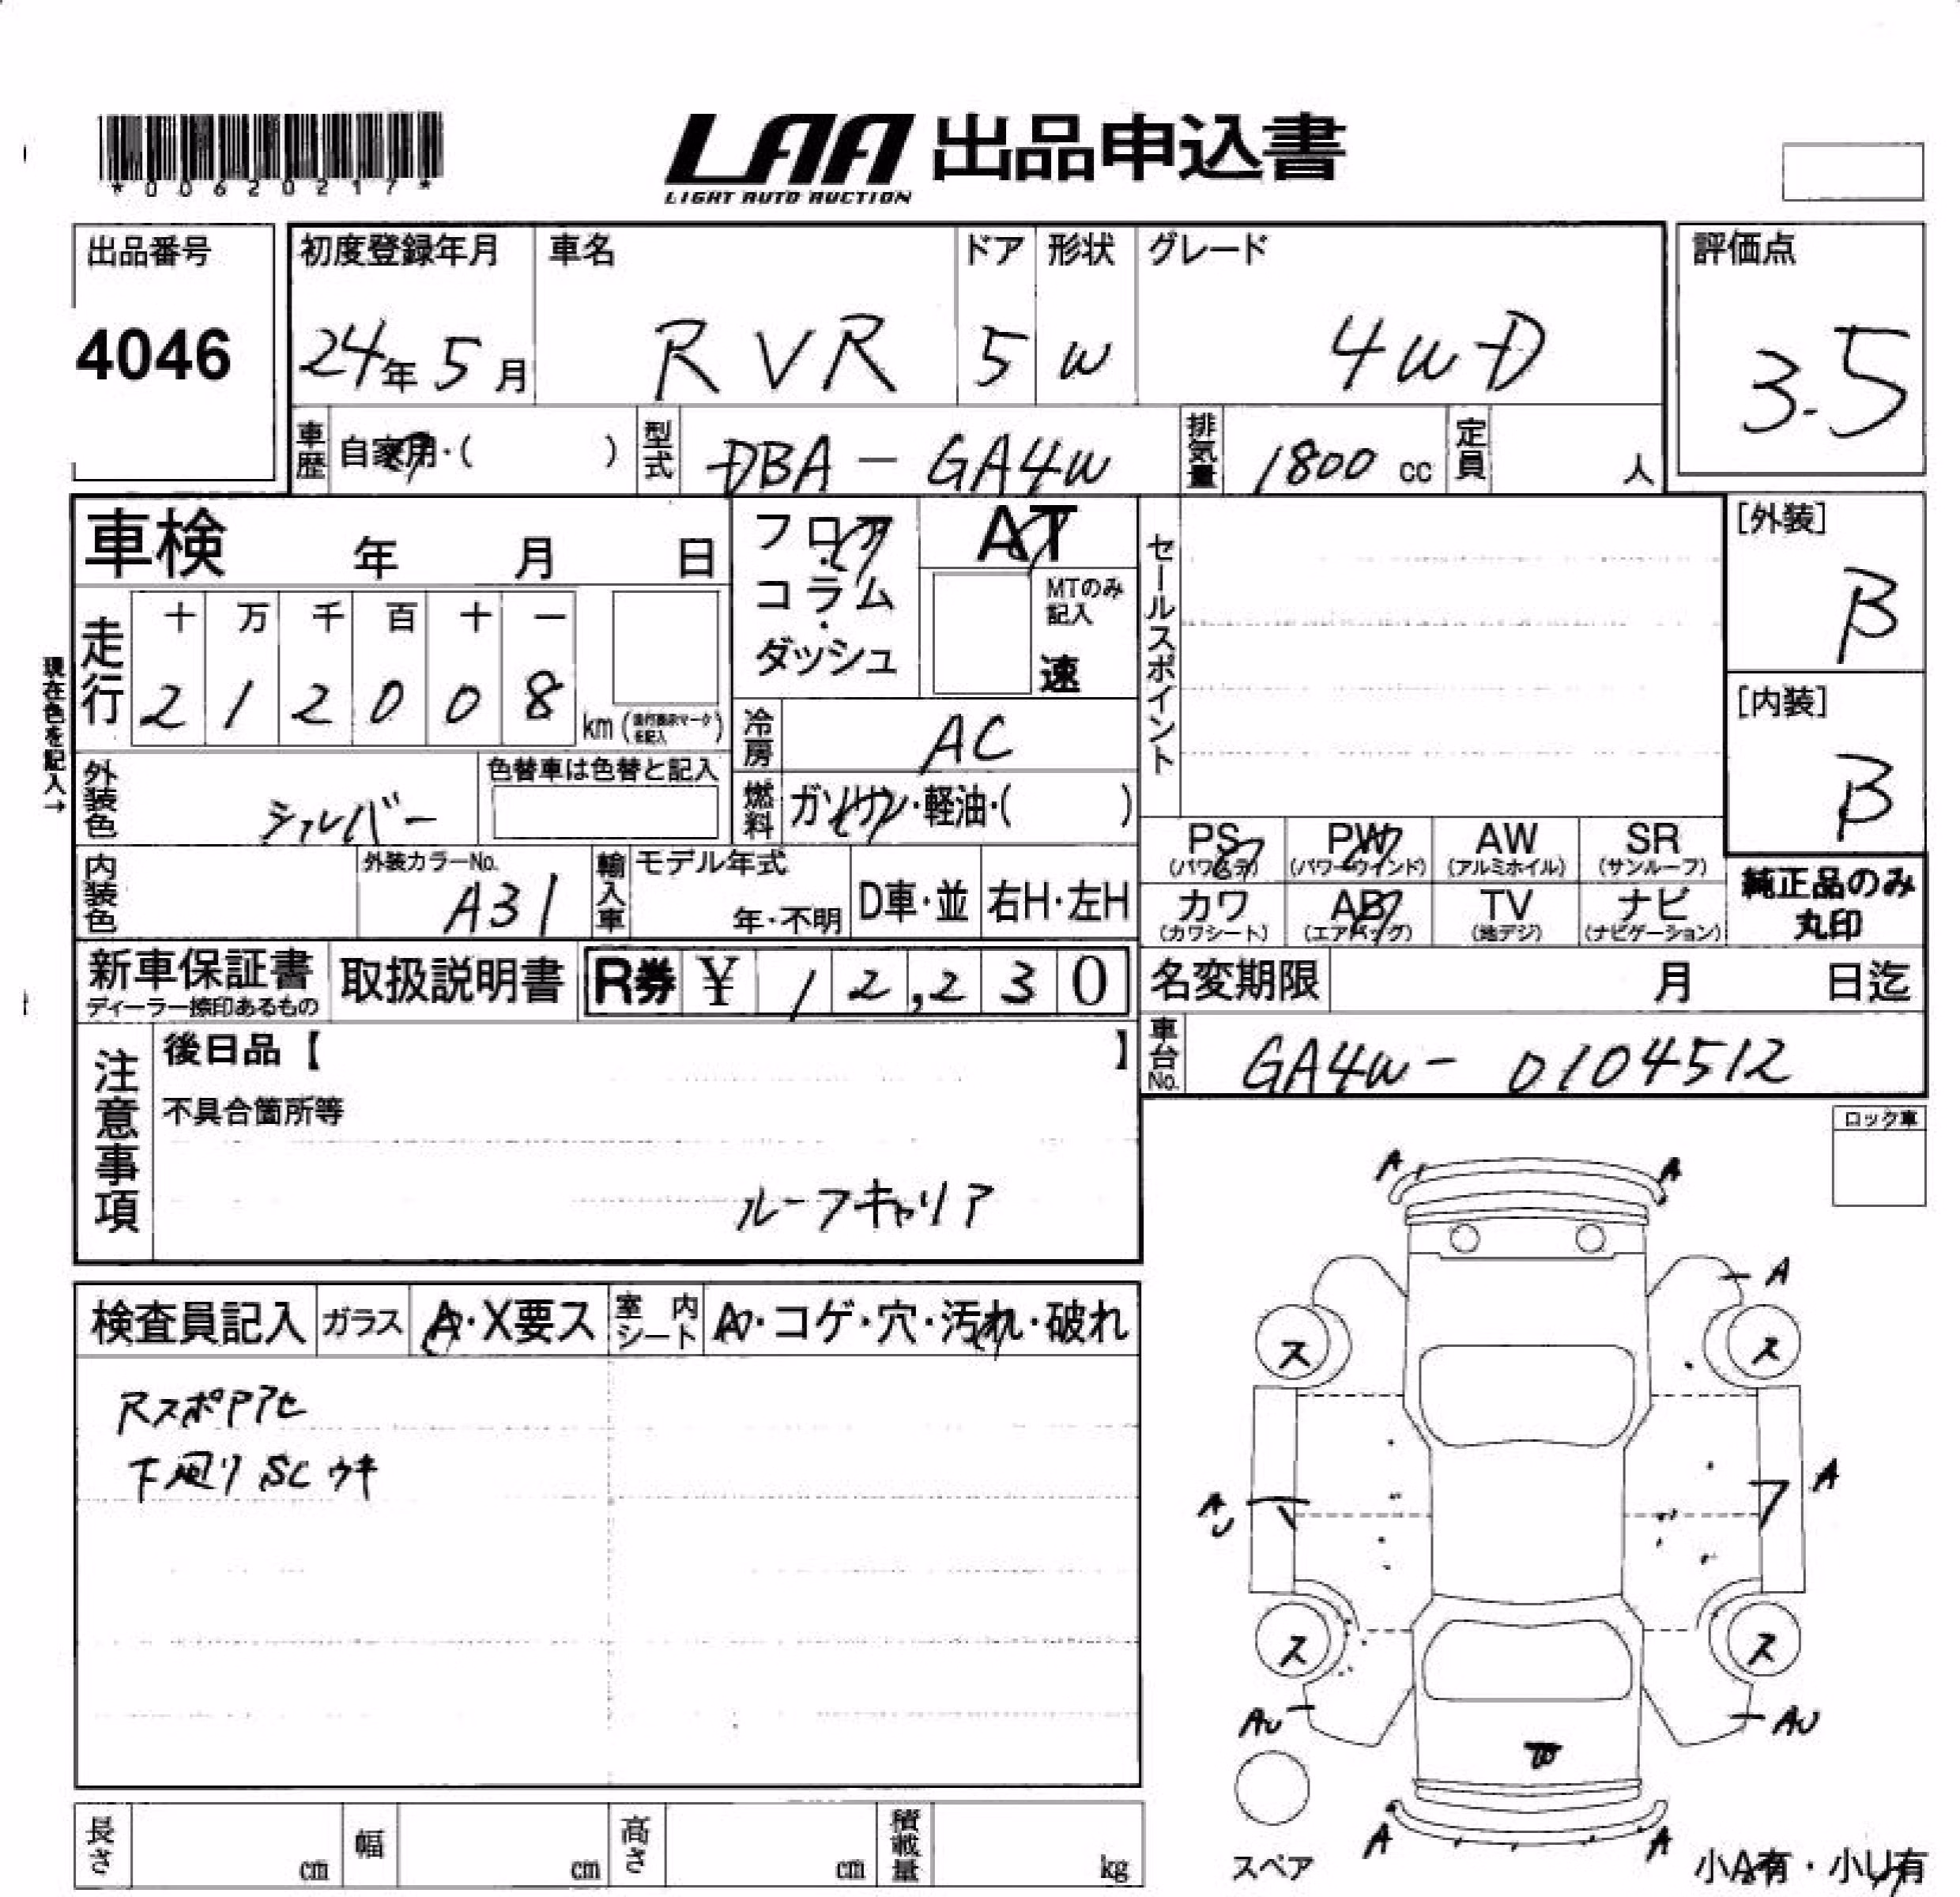 *00620217*
LAA 出品申込書
LIGHT AUTO AUCTION
出品番号
4046
初度登録年月
24年 5月
車名
RVR
ドア
5
形状
W
グレード
4WD
評価点
3.5
車歴 自家用・( )
型式 DBA-GA4W
排気量 1800 cc
定員 人
車検 年 月 日
フロア・コラム・ダッシュ
AT
MTのみ記入
速
セールスポイント
[外装]
B
[内装]
B
現在色を記入→
走行
十 万 千 百 十 一
2 1 2 0 0 8
km
冷房 AC
外装色 シルバー
色替車は色替と記入
燃料 ガソリン・軽油・( )
PS AW SR
(パワステ) (アルミホイル) (サンルーフ)
PW
(パワーウインド)
カワ AB TV ナビ
(カワシート) (エアバッグ) (地デジ) (ナビゲーション)
純正品のみ
丸印
内装色
外装カラーNo.
A31
輸入車 モデル年式
年・不明 D車・並 右H・左H
新車保証書 取扱説明書 R券 ¥ 12,230
ディーラー捺印あるもの
名変期限 月 日迄
車台No. GA4W-0104512
注意事項
後日品【 】
不具合箇所等
ルーフキャリア
ロック車
検査員記入 ガラス A・X要ス 室内シート A・コゲ・穴・汚れ・破れ
RスポPアセ
下廻り SC ウキ
A A
A
ス ス
A
A
U
ス ス
AU AU
A A
スペア
小A有・小U有
長さ cm 幅 cm 高さ cm 積載量 kg